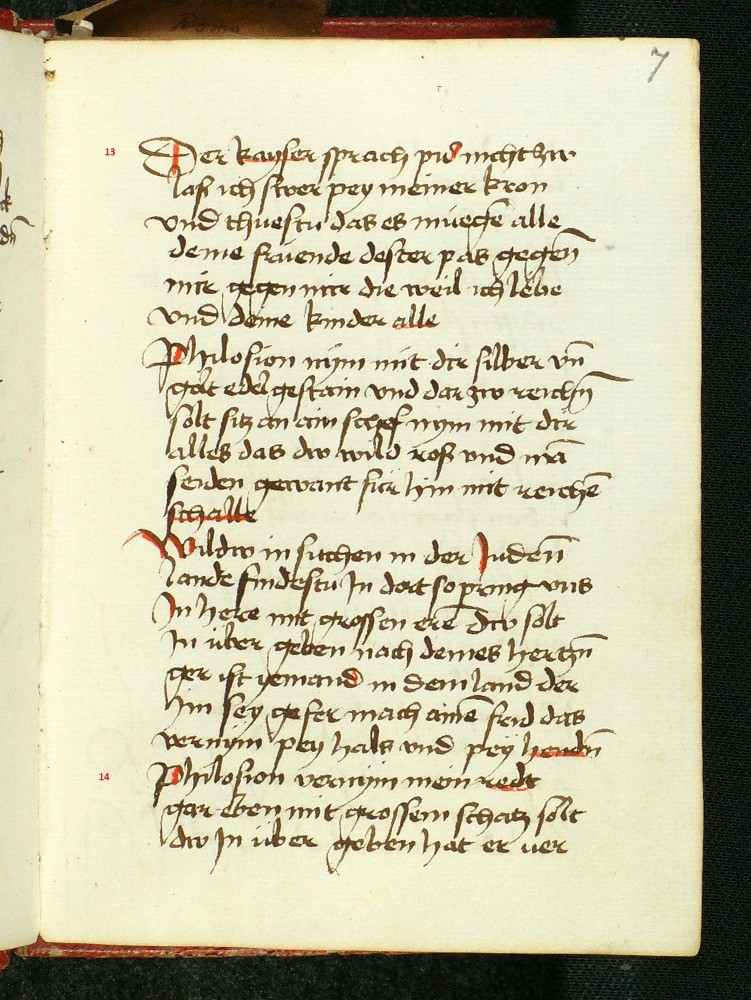 7
13 Der kayser sprach pis nicht hw
las ich swer pey meiner kron
vnd thuestu das es muege alle
deine freuende dester pas gegen̄
mir gegen mir die weil ich lebe
vnd deine kinder alle
Philosion nym mit dir silber vn̄
golt edel gestain vnd dar zw reichn̄
solt sitz an ain schef nym mit dir
alles das dw wild ros vnd
seiden gewant für hin mit reichē
schalle
Wildw in suchen in der Juden̄
lande findestu Jn dort so pring vns
Jn here mit grossen erē Dw solt
Jn über geben nach deines hertzn̄
ger ist yemand in dem land der
Jm sey gefer mach ainē frid das
vernym pey hals vnd pey hendn̄
14 Philosion vernym mein redt
gar eben mit grossem schatz solt
dw Jn über geben hat er ver